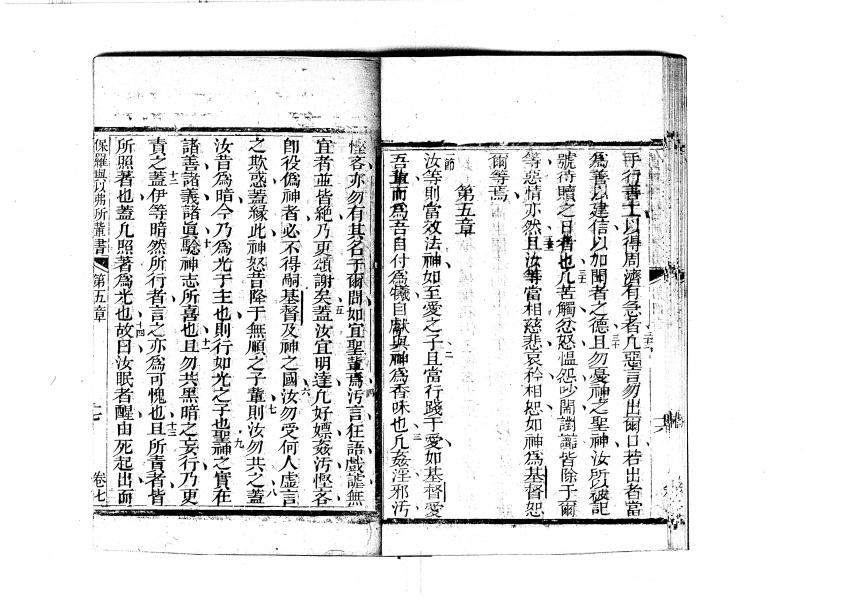 手行善工以得周濟有急者凡惡言勿出爾口若出者當
為善以建信以加聞者之德且勿憂神之聖神汝所被記
號待贖之日者也凡苦觸忿怒慍怨吵鬧謝謡皆除于爾
等惡情亦然且汝等當相慈悲哀矜相恕如神為基督恕
爾等焉
第五章
汝等則當效法神如至愛之子且當行踐于愛如基督愛
吾輩而為吾自付為犧自獻與神為香味也凡姦淫邪汚
慳吝亦勿有其名于爾間如宜聖輩焉汚言狂語戲謔無
宜者並皆絶乃更頌謝矣蓋汝宜明達凡好嫖姦汚慳吝
卽役偽神者必不得嗣基督及神之國汝勿受何人虛言
之欺惑蓋緣此神怒昔降于無順之子輩則汝勿共之蓋
汝昔為暗今乃為光于主也則行如光之子也聖神之實在
諸善諸義諸眞驗神志所喜也且勿共黑暗之妄行乃更
責之蓋伊等暗然所行者言之亦為可愧也且所責者皆
所照著也蓋凡照著為光也故曰汝眠者醒由死起出而
保羅與以弗所輩書 第五章 卷七